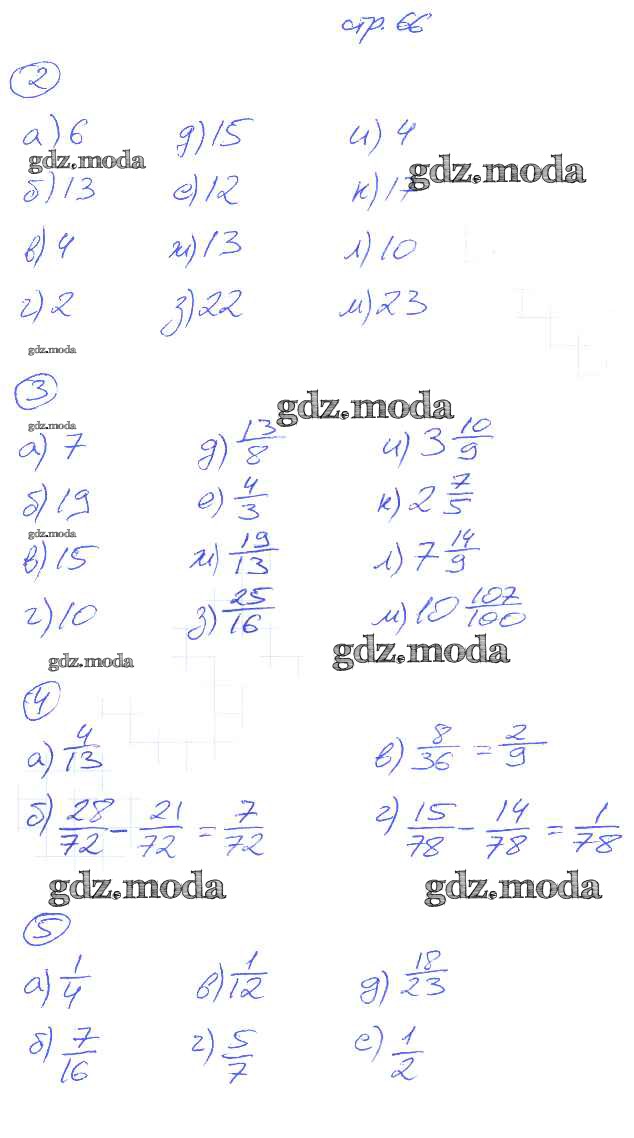 стр. 66
2
а) 6 д) 15 и) 4
gdz.moda gdz.moda
б) 13 е) 12 к) 17
в) 4 ж) 13 л) 10
г) 2 з) 22 м) 23
gdz.moda
3
gdz.moda gdz.moda
а) 7 д) 13/8 и) 3 10/9
б) 19 е) 4/3 к) 2 7/5
gdz.moda
в) 15 ж) 19/13 л) 7 14/9
г) 10 з) 25/16 м) 10 107/100
gdz.moda gdz.moda
4
а) 4/13 в) 8/36 = 2/9
б) 28/72 - 21/72 = 7/72 г) 15/78 - 14/78 = 1/78
gdz.moda gdz.moda
5
а) 1/4 в) 1/12 д) 18/23
б) 7/16 г) 5/7 е) 1/2